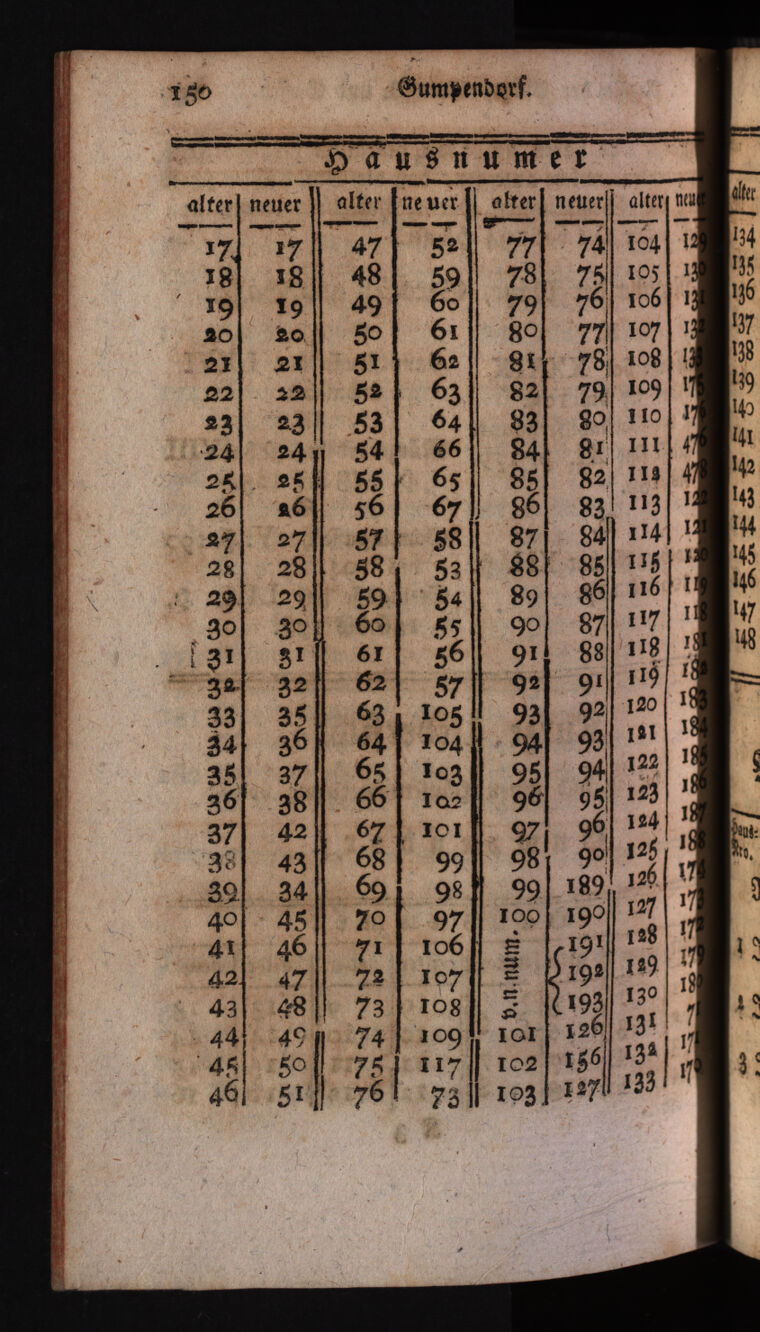 150 Gumpendorf.
Hausnumer
alter neuer alter neuer alter neuer alter
17 17 47 52 77 74 104
18 18 48 59 78 75 105
19 19 49 60 79 76 106
20 20 50 61 80 77 107
21 21 51 62 81 78 108
22 22 52 63 82 79 109
23 23 53 64 83 80 110
24 24 54 66 84 81 111
25 25 55 65 85 82 112
26 26 56 67 86 83 113
27 27 57 58 87 84 114
28 28 58 53 88 85 115
29 29 59 54 89 86 116
30 30 60 55 90 87 117
31 31 61 56 91 88 118
32 32 62 57 92 91 119
33 35 63 105 93 92 120
34 36 64 104 94 93 121
35 37 65 103 95 94 122
36 38 66 102 96 95 123
37 42 67 101 97 96 124
38 43 68 99 98 90 125
39 34 69 98 99 189 126
40 45 70 97 100 190 127
41 46 71 106 v.n.num. 191 128
42 47 72 107 192 129
43 48 73 108 193 130
44 49 74 109 101 126 131
45 50 75 117 102 156 132
46 51 76 73 103 127 133
alter
134
135
136
137
138
139
140
141
142
143
144
145
146
147
148